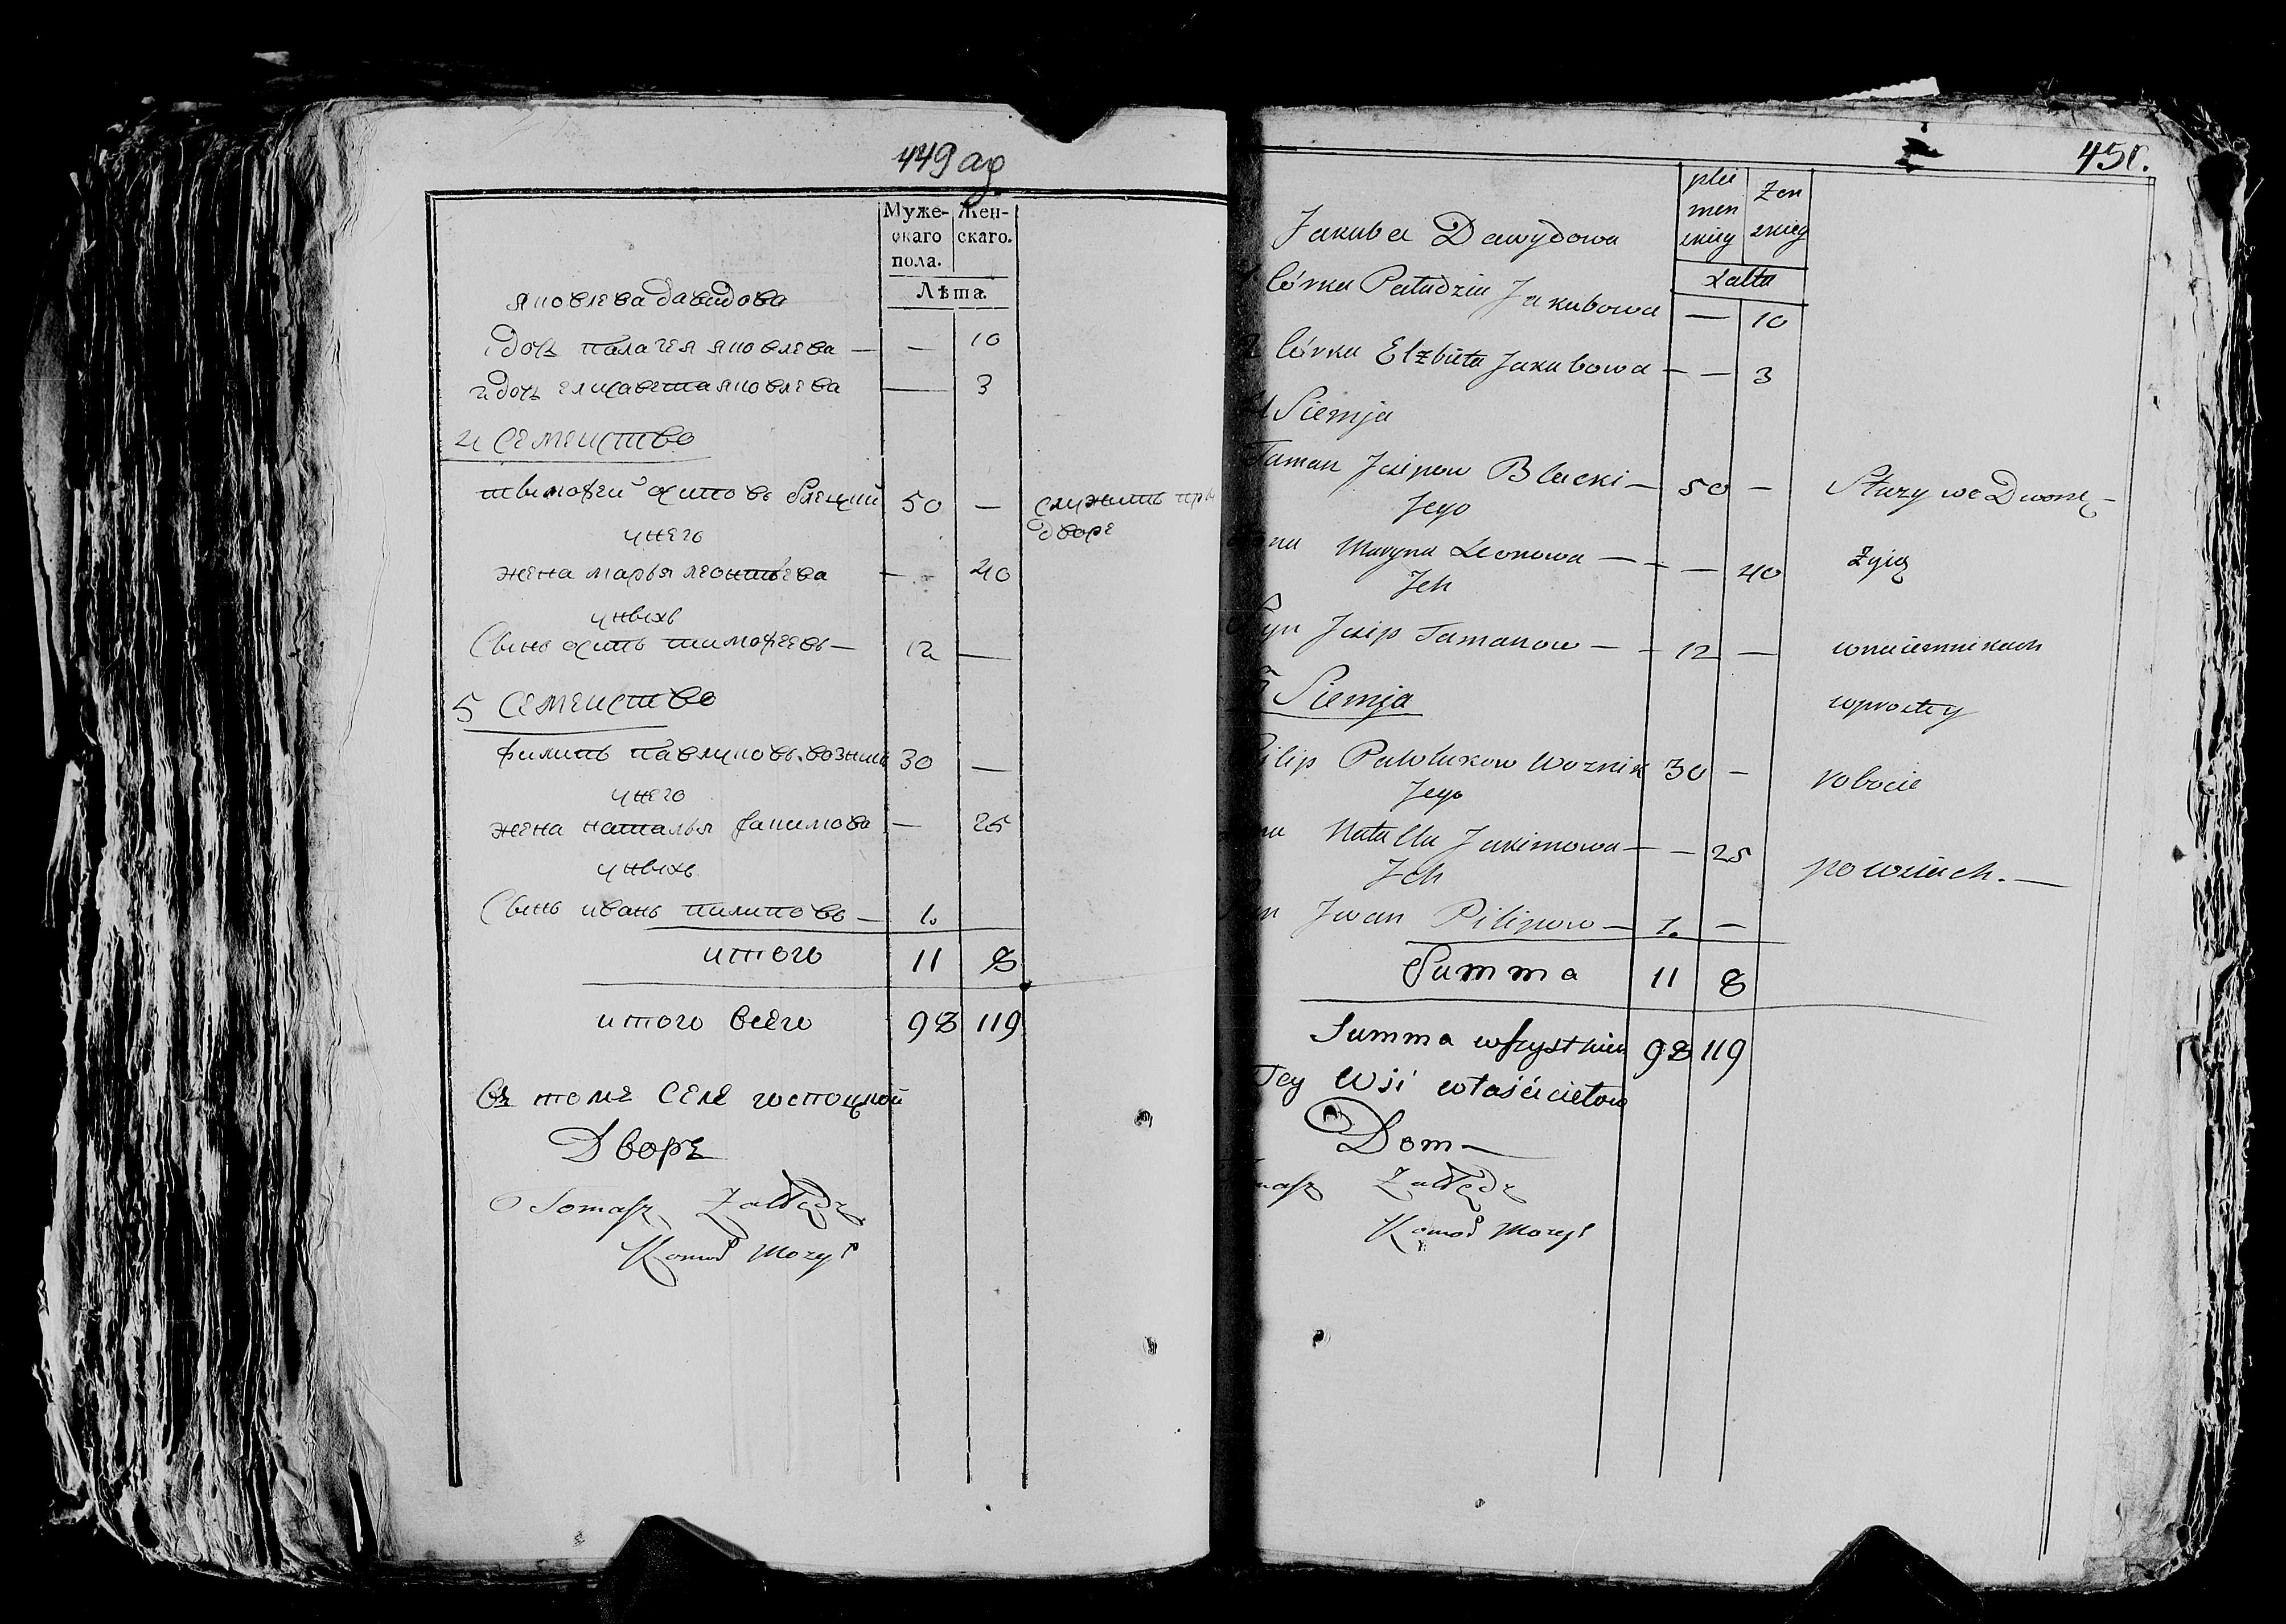 449 ад
Муже-
скаго
пола.
Жен-
скаго.
Лѣта.
Яковлева давидова
1 дочь палагея яковлева — — 10
2 дочь елисавета яковлева — 3
4 Семейство
тимофей осиповъ блецкий 50 — служить при
дворе
у него
жена марья леонтьева — 40
у нихъ
Сынъ осипъ тимофеевъ — 12 —
5 Семейство
филипъ павлуковъ возник 30 —
у него
жена наталья якимова — 25
у нихъ
Сынъ иванъ пилиповъ — 1.
итого 11 8
итого всего 98 119
Въ томъ Селе господской
Дворъ
Tomasz
450.
plei
men
skiey
Zen
skiey
Jakuba Dawydowa
Latta
córka Paladzia Jakubowa — 10
córka Elzbieta Jakubowa — — 3
4 Siemja
Taman Jusipow Blecki — 50 — Służy we Dworze
Jego
Maryna Leonowa — — — 40 żyią
Jch
Syn Jusip Tamanow — — 12 — w naiemnikach
5 Siemja
w prostey
Pilip Pawlukow Woznik 30 —
robocie
Jego
Natalla Jakimowa — — 25
Jch
po wsiach. —
Jwan Pilipow — 1. —
Summa 11 8
Summa wszystkich 98 119
Tey Wsi właścicielow
Dom —